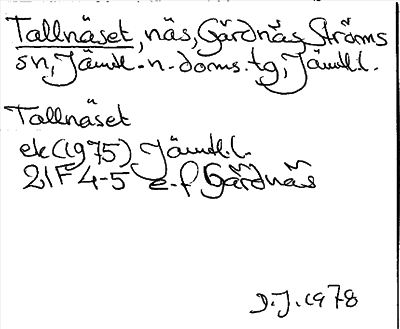 Tallnäset, näs, Gärdnäs, Ströms
sn, Jämtl. n. doms. tg, Jämtl. l.
Tallnäset
ek (1975) Jämtl. l.
21F 4-5 e-f Gärdnäs
D.J. 1978